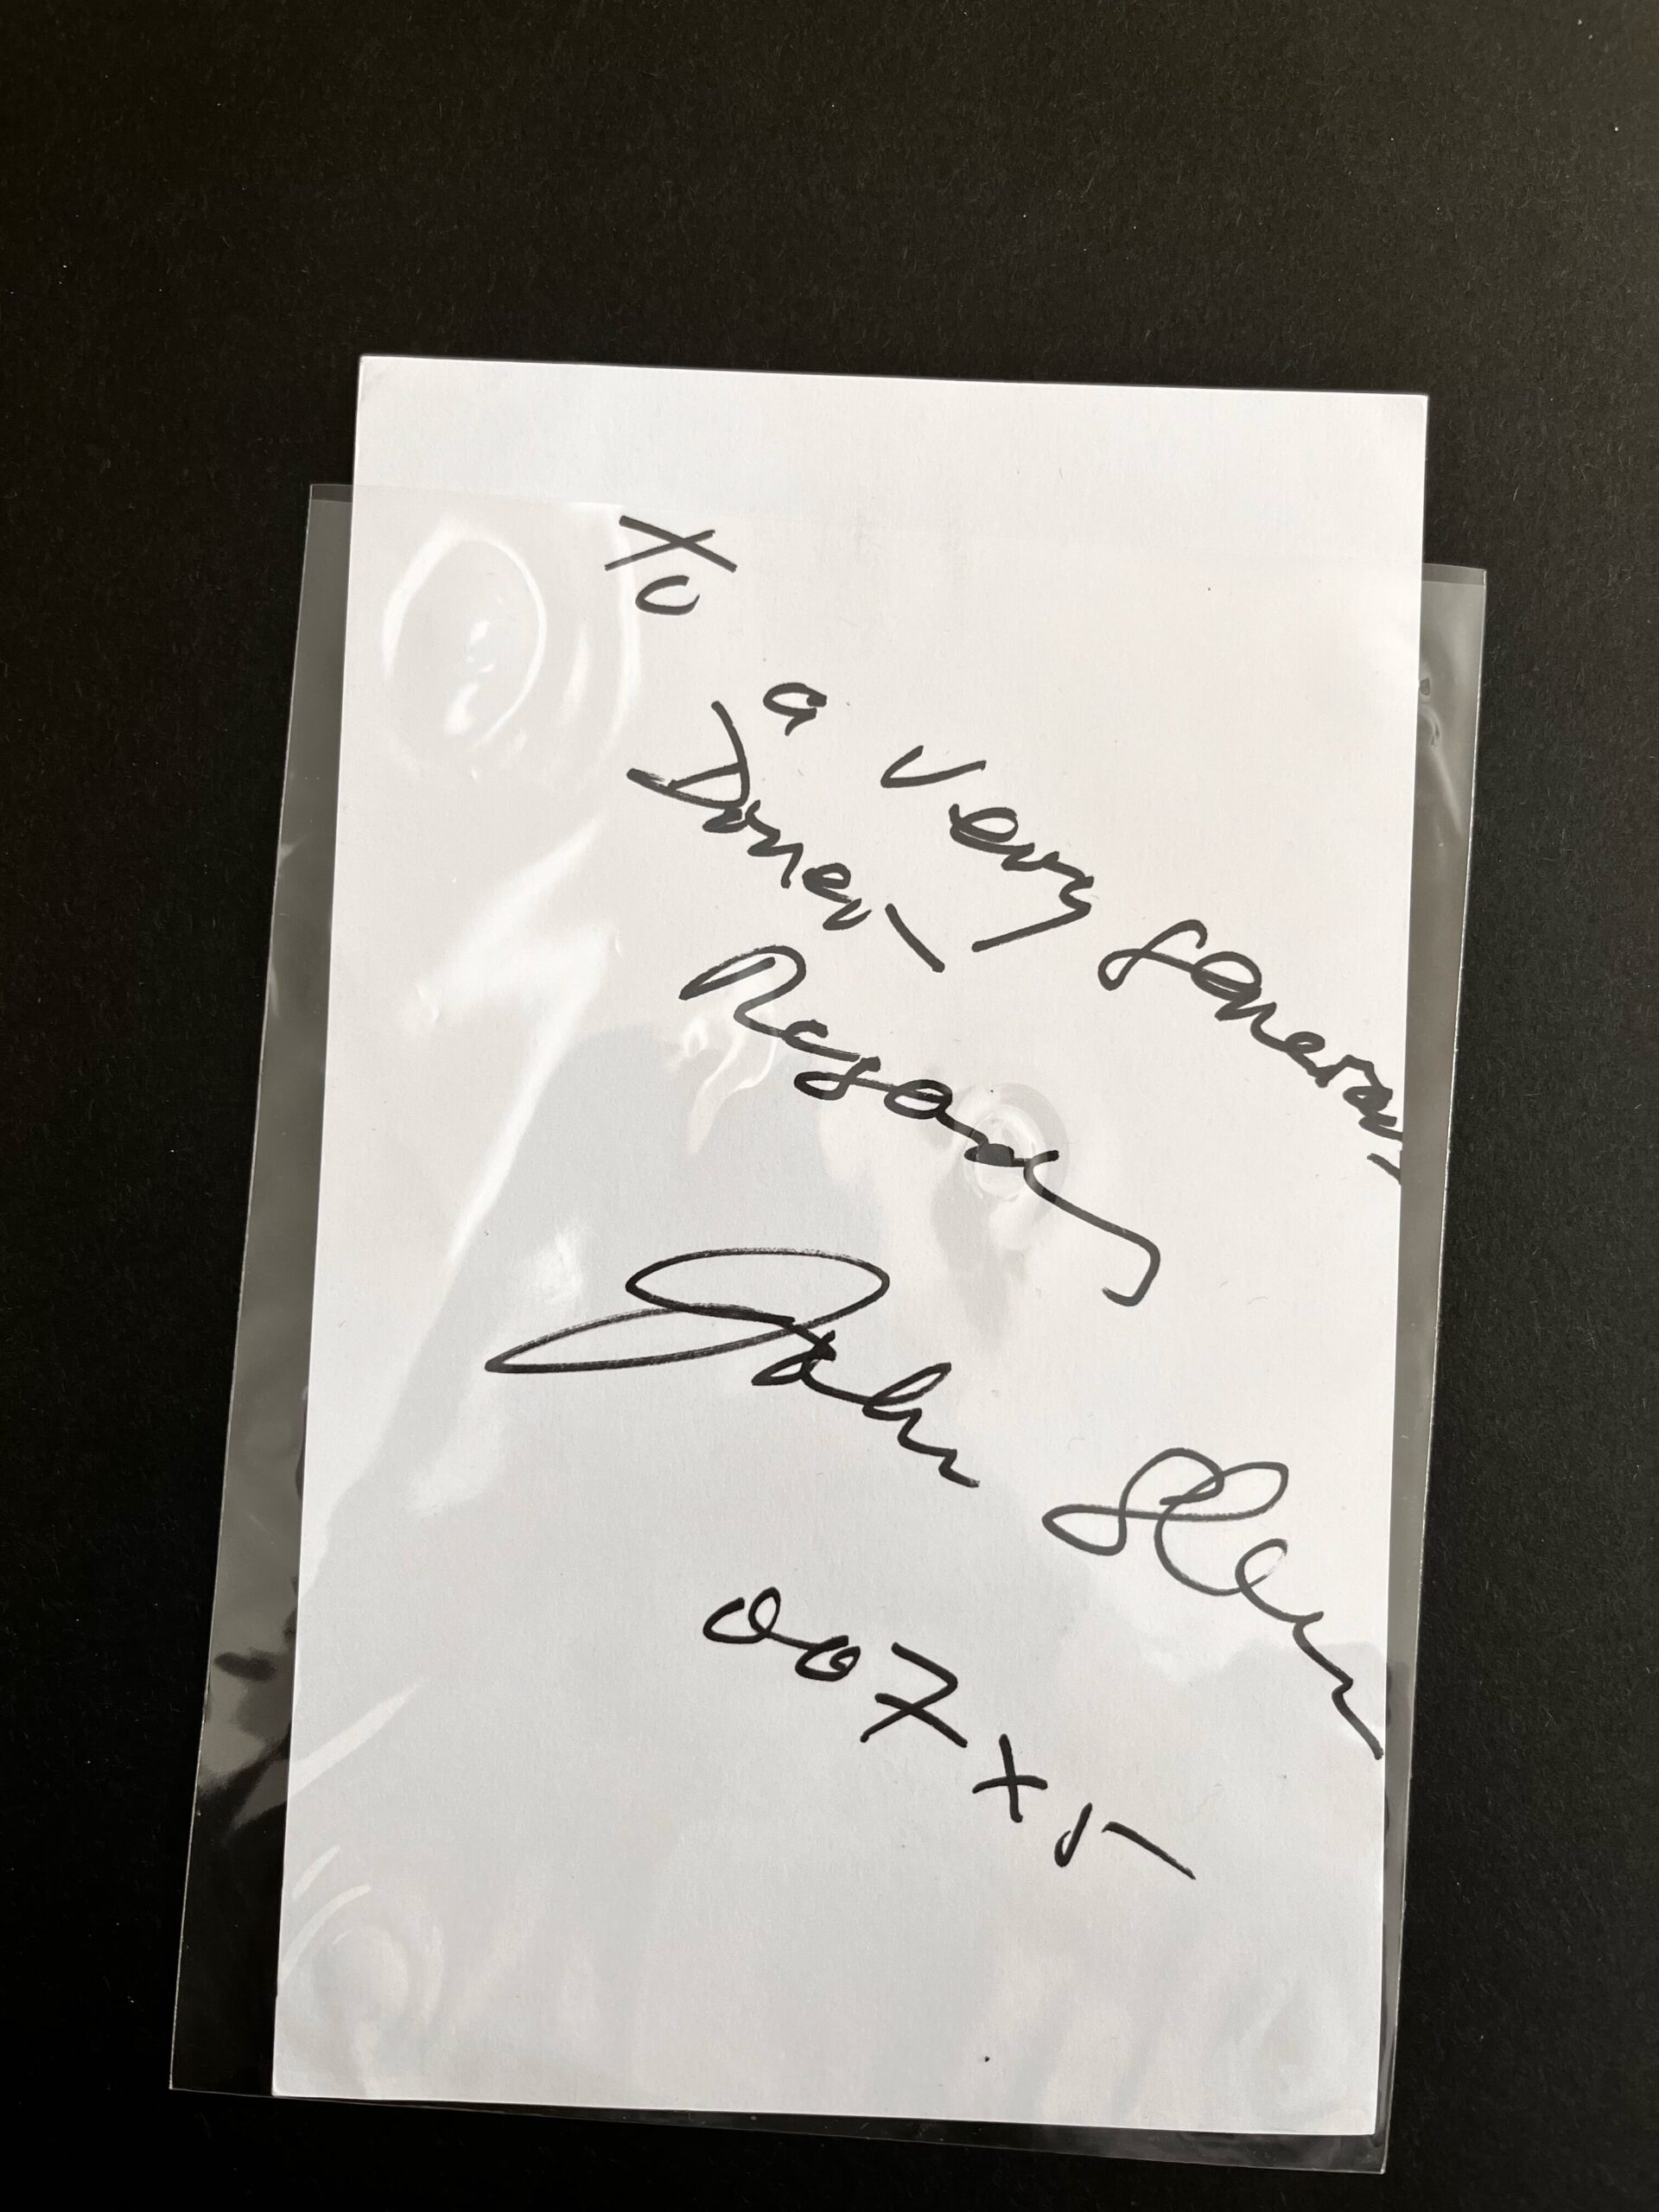 To
a very generous
Doner
Regards
John Glen
007 x 5